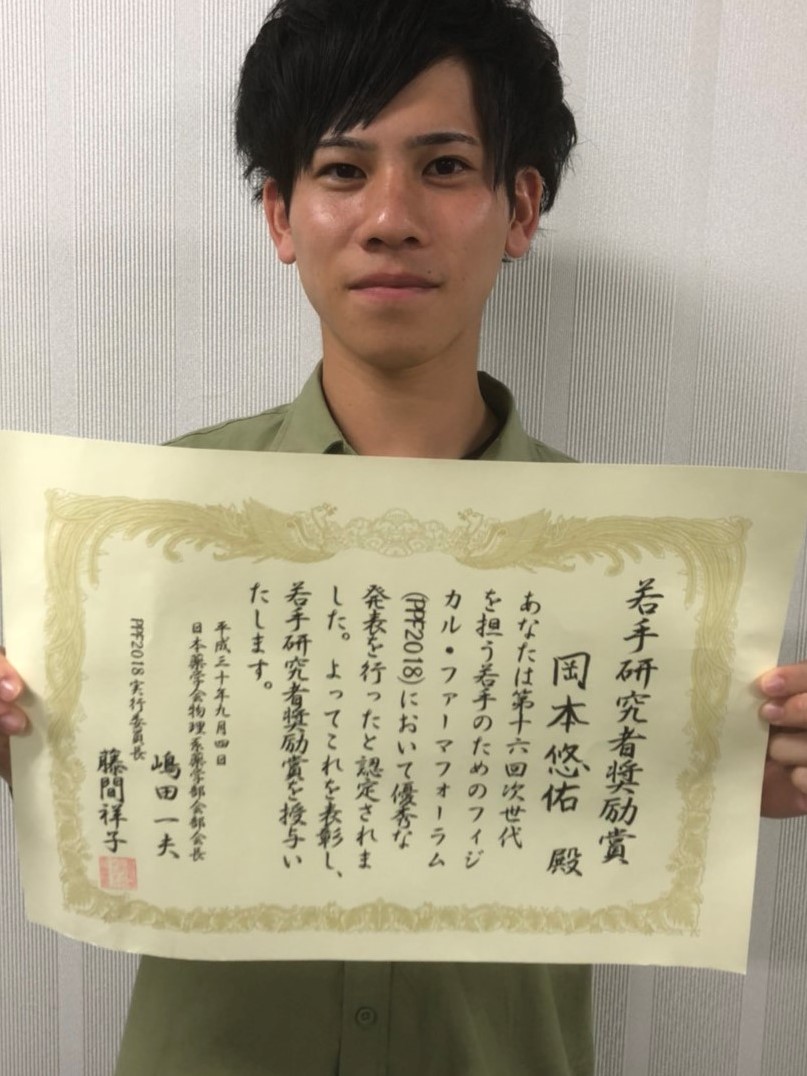 若手研究者奨励賞
岡本悠佑 殿
あなたは第十六回次世代
を担う若手のためのフィジ
カル・ファーマフォーラム
(PPF2018)において優秀な
発表を行ったと認定されま
した。よってこれを表彰し、
若手研究者奨励賞を授与い
たします。
平成三十年九月四日
日本薬学会物理系薬学部会部会長
嶋田一夫
PPF2018 実行委員長
藤間祥子